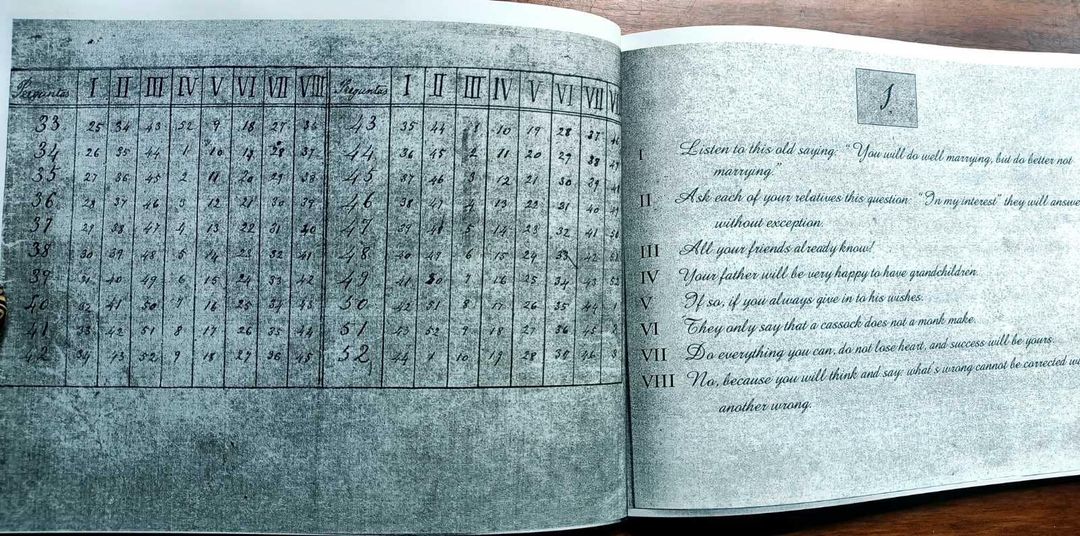 Perguntas I II III IV V VI VII VIII Perguntas I II III IV V VI VII
33 25 34 43 52 9 18 27 36 43 35 44 10 19 28 37
34 26 35 44 1 10 19 28 37 44 36 45 2 11 20 29 38
35 27 36 45 2 11 20 29 38 45 37 46 3 12 21 30 39
36 28 37 46 3 12 21 30 39 46 38 47 4 13 22 31 40
37 29 38 47 4 13 22 31 40 47 39 48 5 14 23 32 41
38 30 39 48 5 14 23 32 41 48 40 49 6 15 24 33 42
39 31 40 49 6 15 24 33 42 49 41 50 7 16 25 34 43
40 32 41 50 7 16 25 34 43 50 42 51 8 17 26 35 44 1
41 33 42 51 8 17 26 35 44 51 43 52 9 18 27 36 45 2
42 34 43 52 9 18 27 36 45 52 44 1 10 19 28 38 46 3
1.
I Listen to this old saying: "You will do well marrying, but do better not
marrying"
II Ask each of your relatives this question: "In my interest" they will answer
without exception.
III All your friends already know!
IV Your father will be very happy to have grandchildren.
V If so, if you always give in to his wishes.
VI They only say that a cassock does not a monk make.
VII Do everything you can, do not lose heart, and success will be yours.
VIII No, because you will think and say: what's wrong cannot be corrected
another wrong.